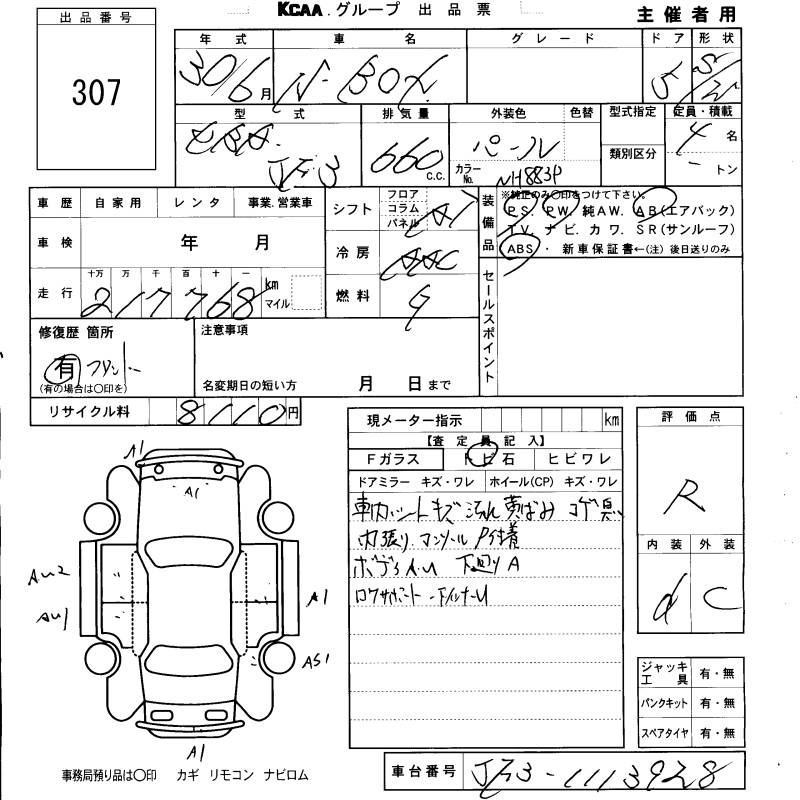 KCAA.グループ 出品票
主催者用
出品番号
307
年式 車名 グレード ドア 形状
30/6月 N-BOX 5 S/W
型式 排気量 外装色 色替 型式指定 定員・積載
DBA-JF3 660 C.C. パール 4名
カラーNo. NH883P 類別区分 - トン
車歴 自家用 レンタ 事業.営業車
車検 年 月
十万 万 千 百 十 一
走行 217768 km マイル
シフト フロア コラム パネル AT
冷房 AAC
燃料 G
装備品 ※純正のみ〇印をつけて下さい。
PS. PW. 純AW. AB(エアバック)
TV. ナビ. カワ. SR(サンルーフ)
ABS ・ 新車保証書←(注) 後日送りのみ
セールスポイント
修復歴 箇所
有 フロント
(有の場合は〇印を)
注意事項
名変期日の短い方 月 日まで
リサイクル料 8110円
現メーター指示 km
【査定員記入】
Fガラス トビ石 ヒビワレ
ドアミラー キズ・ワレ ホイール(CP) キズ・ワレ
車内シートキズ 汚れ 黄ばみ コゲ臭
内張り
P付着
ボデー 下廻りA
評価点
R
内装 外装
d C
ジャッキ工具 有・無
パンクキット 有・無
スペアタイヤ 有・無
A1
A1
AU2
AU1
A1
AS1
A1
事務局預り品は〇印 カギ リモコン ナビロム
車台番号 JF3-1113928